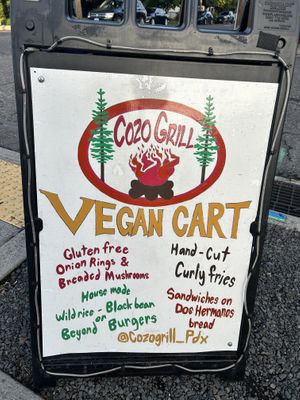 COZO GRILL
VEGAN CART
Gluten free
Onion Rings &
Breaded Mushrooms
House made
Wild rice - Black bean
or
Beyond Burgers
Hand-Cut
Curly fries
Sandwiches on
Dos Hermanos
bread
@Cozogrill_Pdx